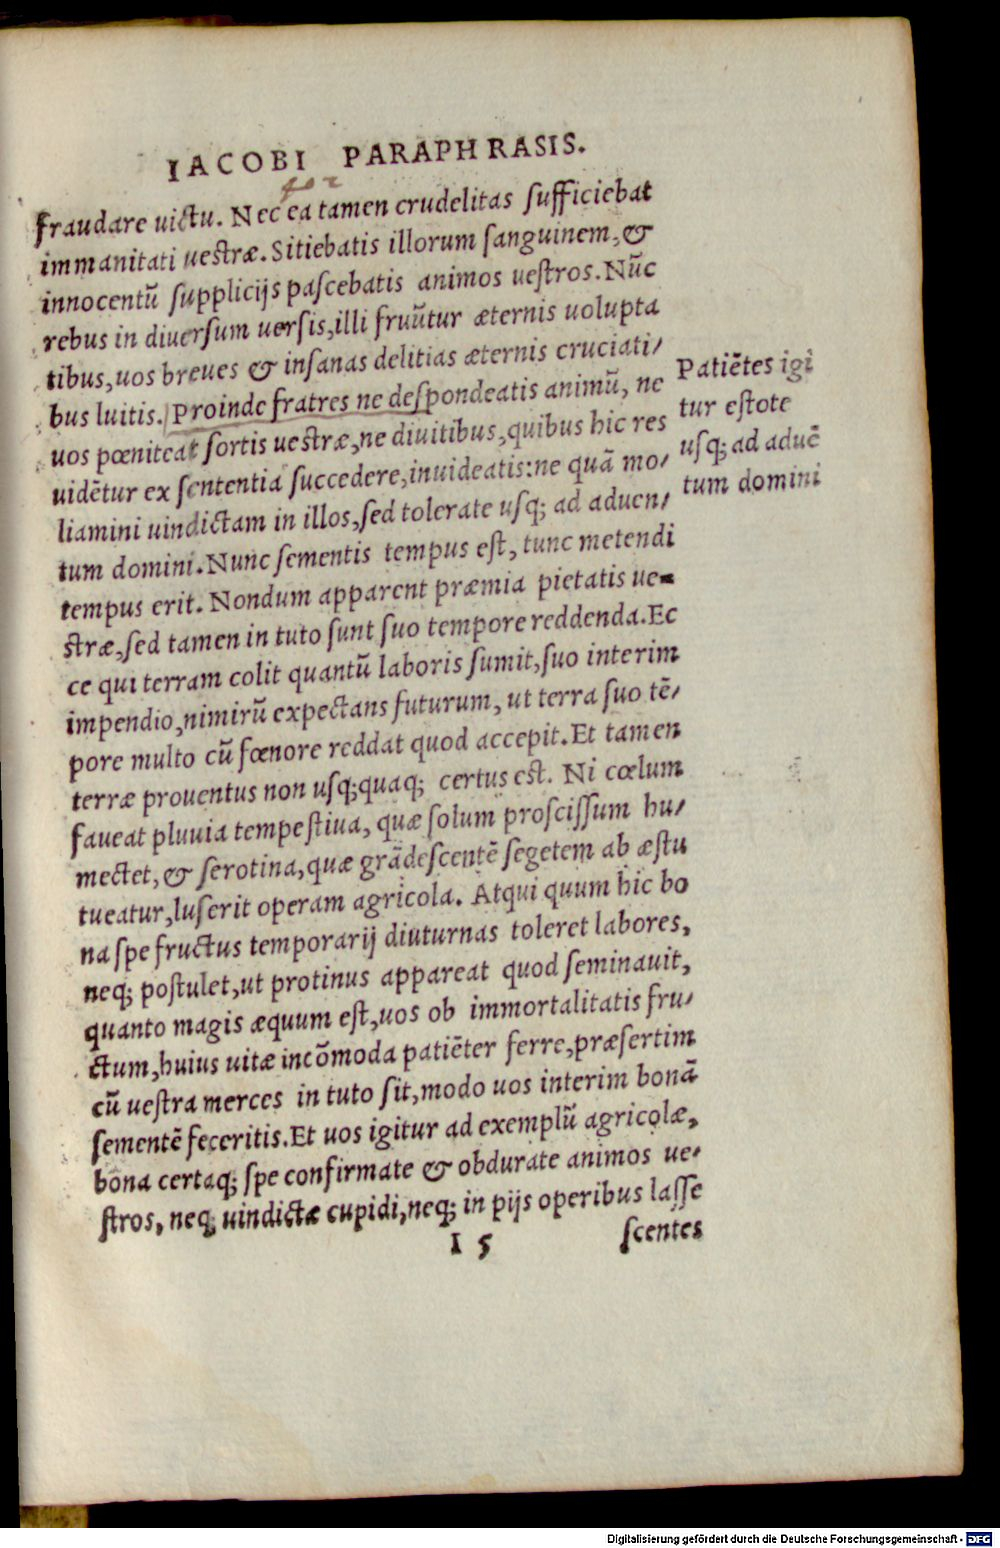 IACOBI PARAPHRASIS.
fraudare uictu. Nec ea tamen crudelitas ſufficiebat
immanitati ueſtræ. Sitiebatis illorum ſanguinem, &
innocentū ſupplicijs paſcebatis animos ueſtros. Nūc
rebus in diuerſum uerſis, illi fruūtur æternis uolupta
tibus, uos breues & inſanas delitias æternis cruciati/
bus luitis. Proinde fratres ne deſpondeatis animū, ne
uos pœniteat ſortis ueſtræ, ne diuitibus, quibus hic res
uidētur ex ſententia ſuccedere, inuideatis: ne quā mo/
liamini uindictam in illos, ſed tolerate uſq; ad aduen/
tum domini. Nunc ſementis tempus eſt, tunc metendi
tempus erit. Nondum apparent præmia pietatis ue-
ſtræ, ſed tamen in tuto ſunt ſuo tempore reddenda. Ec
ce qui terram colit quantū laboris ſumit, ſuo interim
impendio, nimirū expectans futurum, ut terra ſuo tē/
pore multo cū fœnore reddat quod accepit. Et tamen
terræ prouentus non uſq;quaq; certus est. Ni cœlum
faueat pluuia tempeſtiua, quæ ſolum proſciſſum hu/
mectet, & ſerotina, quæ grādeſcentē ſegetem ab æſtu
tueatur, luſerit operam agricola. Atqui quum hic bo
na ſpe fructus temporarij diuturnas toleret labores,
neq; poſtulet, ut protinus appareat quod ſeminauit,
quanto magis æquum eſt, uos ob immortalitatis fru/
ctum, huius uitæ incōmoda patiēter ferre, præſertim
cū ueſtra merces in tuto ſit, modo uos interim bonā
ſementē feceritis. Et uos igitur ad exemplū agricolæ,
bona certaq; ſpe confirmate & obdurate animos ue/
ſtros, neq; uindictæ cupidi, neq; in pijs operibus laſſe
I 5 ſcentes
Patiētes igi
tur eſtote
uſq; ad aduē
tum domini
Digitalisierung gefördert durch die Deutsche Forschungsgemeinschaft - DFG